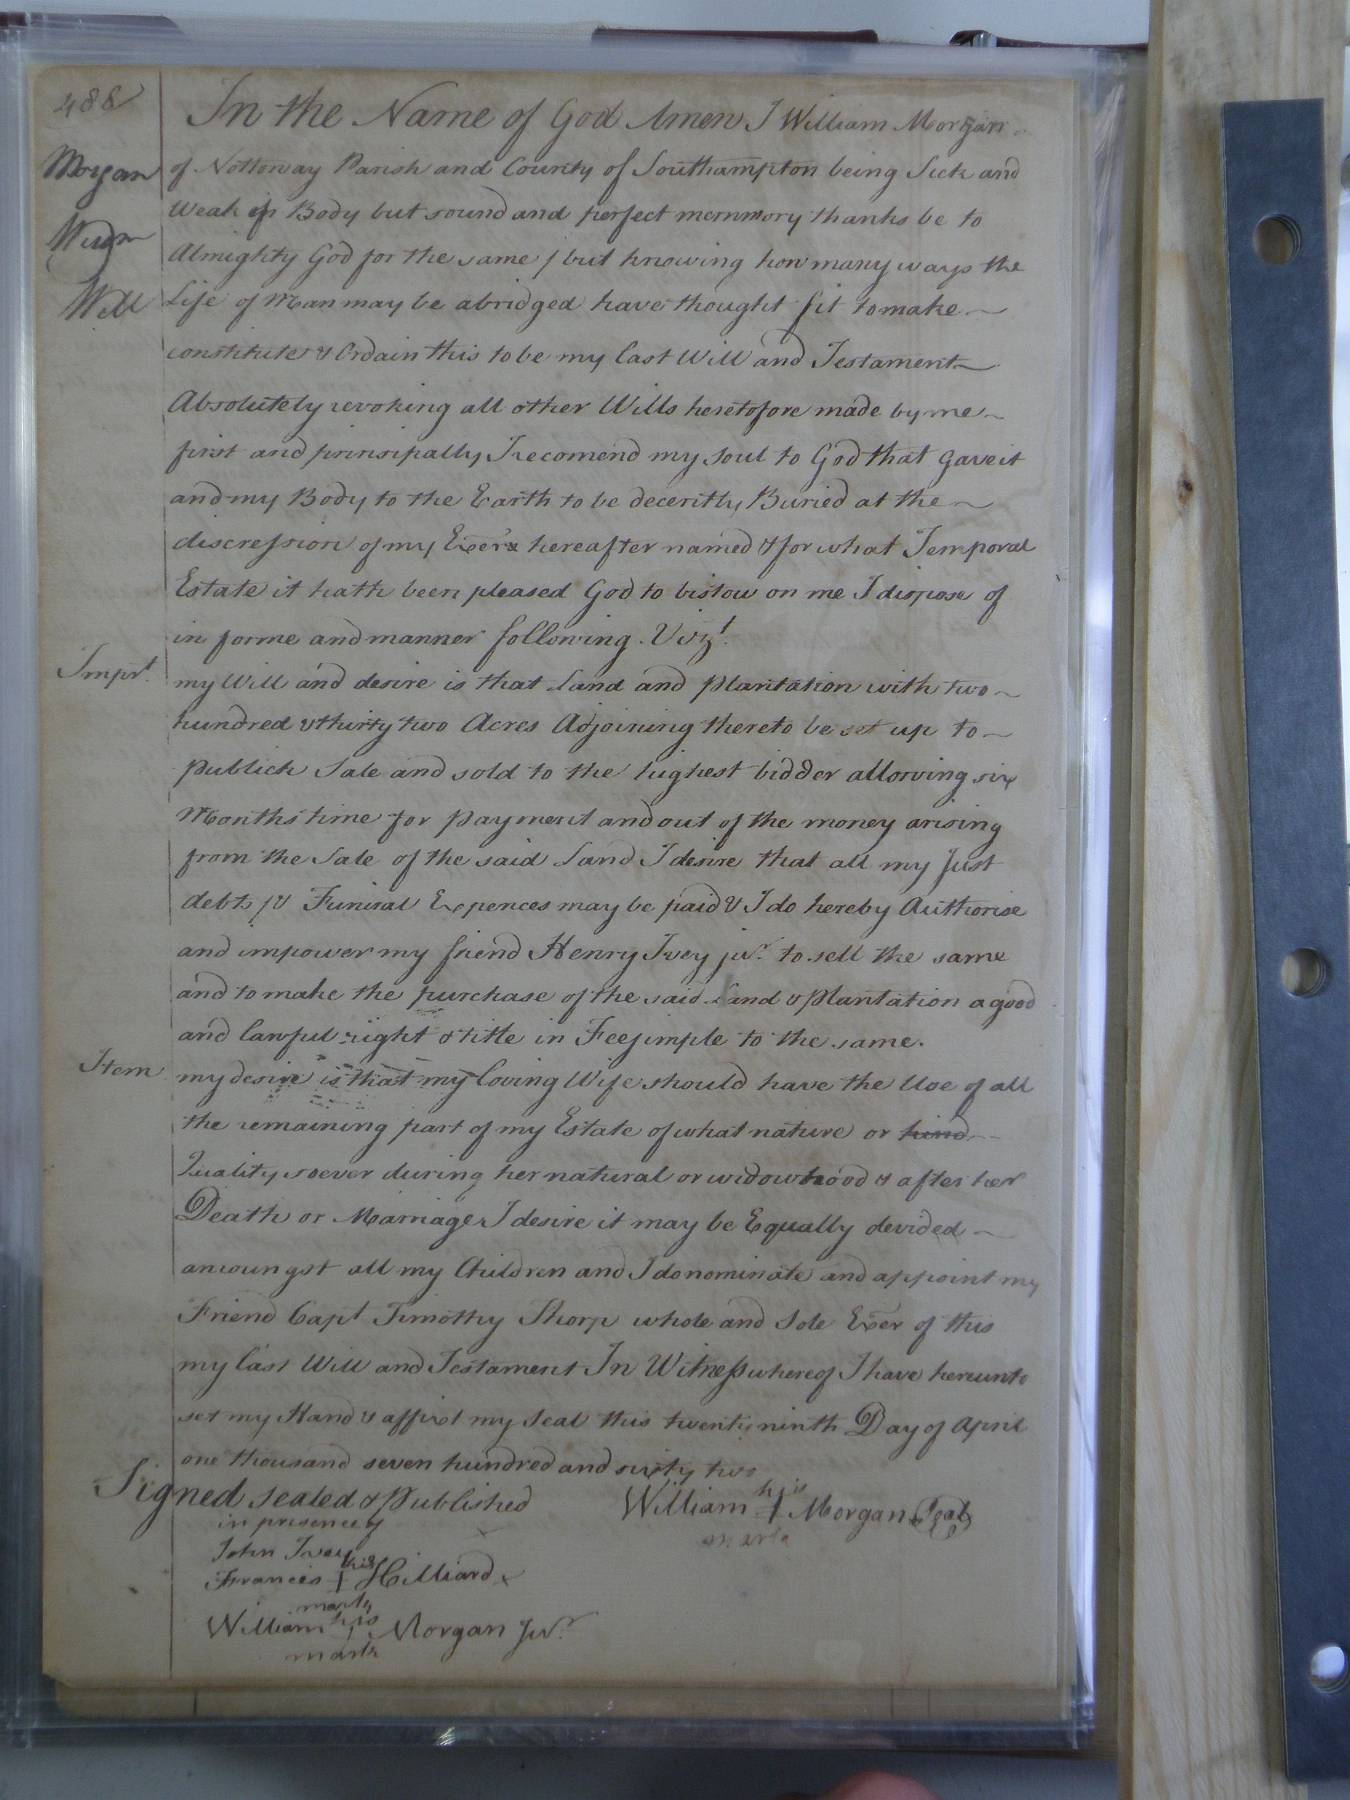 488
Morgan
Willm
Will
In the Name of God Amen I William Morgan
of Nottoway Parish and County of Southampton being Sick and
Weak in Body but sound and perfect memmory thanks be to
Almighty God for the same / but knowing how many ways the
Life of Man may be abridged have thought fit to make
constitute & Ordain this to be my Last Will and Testament
Absolutely revoking all other Wills heretofore made by me
first and prinsipally I recomend my Soul to God that gave it
and my Body to the Earth to be decently Buried at the
discression of my Exers hereafter named & for what Temporal
Estate it hath been pleased God to bistow on me I dispose of
in forme and manner following Vizt.
Imprt. my Will and desire is that Land and plantation with two
hundred & thirty two Acres Adjoining thereto be set up to
publick Sale and sold to the highest bidder allowing six
Months time for payment and out of the money arising
from the Sale of the said Land I desire that all my Just
debts & Funiral Expences may be paid & I do hereby Authorise
and impower my friend Henry Ivey jur. to sell the same
and to make the purchase of the said Land & Plantation a good
and lawful right & title in Feesimple to the same.
Item my desire is that my loving Wife should have the Use of all
the remaining part of my Estate of what nature or kind
Quality soever during her natural or widowhood & after her
Death or Marriage I desire it may be Equally devided
amoungst all my Children and I do nominate and appoint my
Friend Capt Timothy Thorp whole and Sole Exer of this
my Last Will and Testament In Witness whereof I have hereunto
set my Hand & affixt my Seal this twenty ninth Day of April
one thousand seven hundred and sixty two
Signed sealed & Published
in presence of
William his Morgan Seal
mark
John Ivey
Francis his Hilliard
mark
William his Morgan Jur.
mark